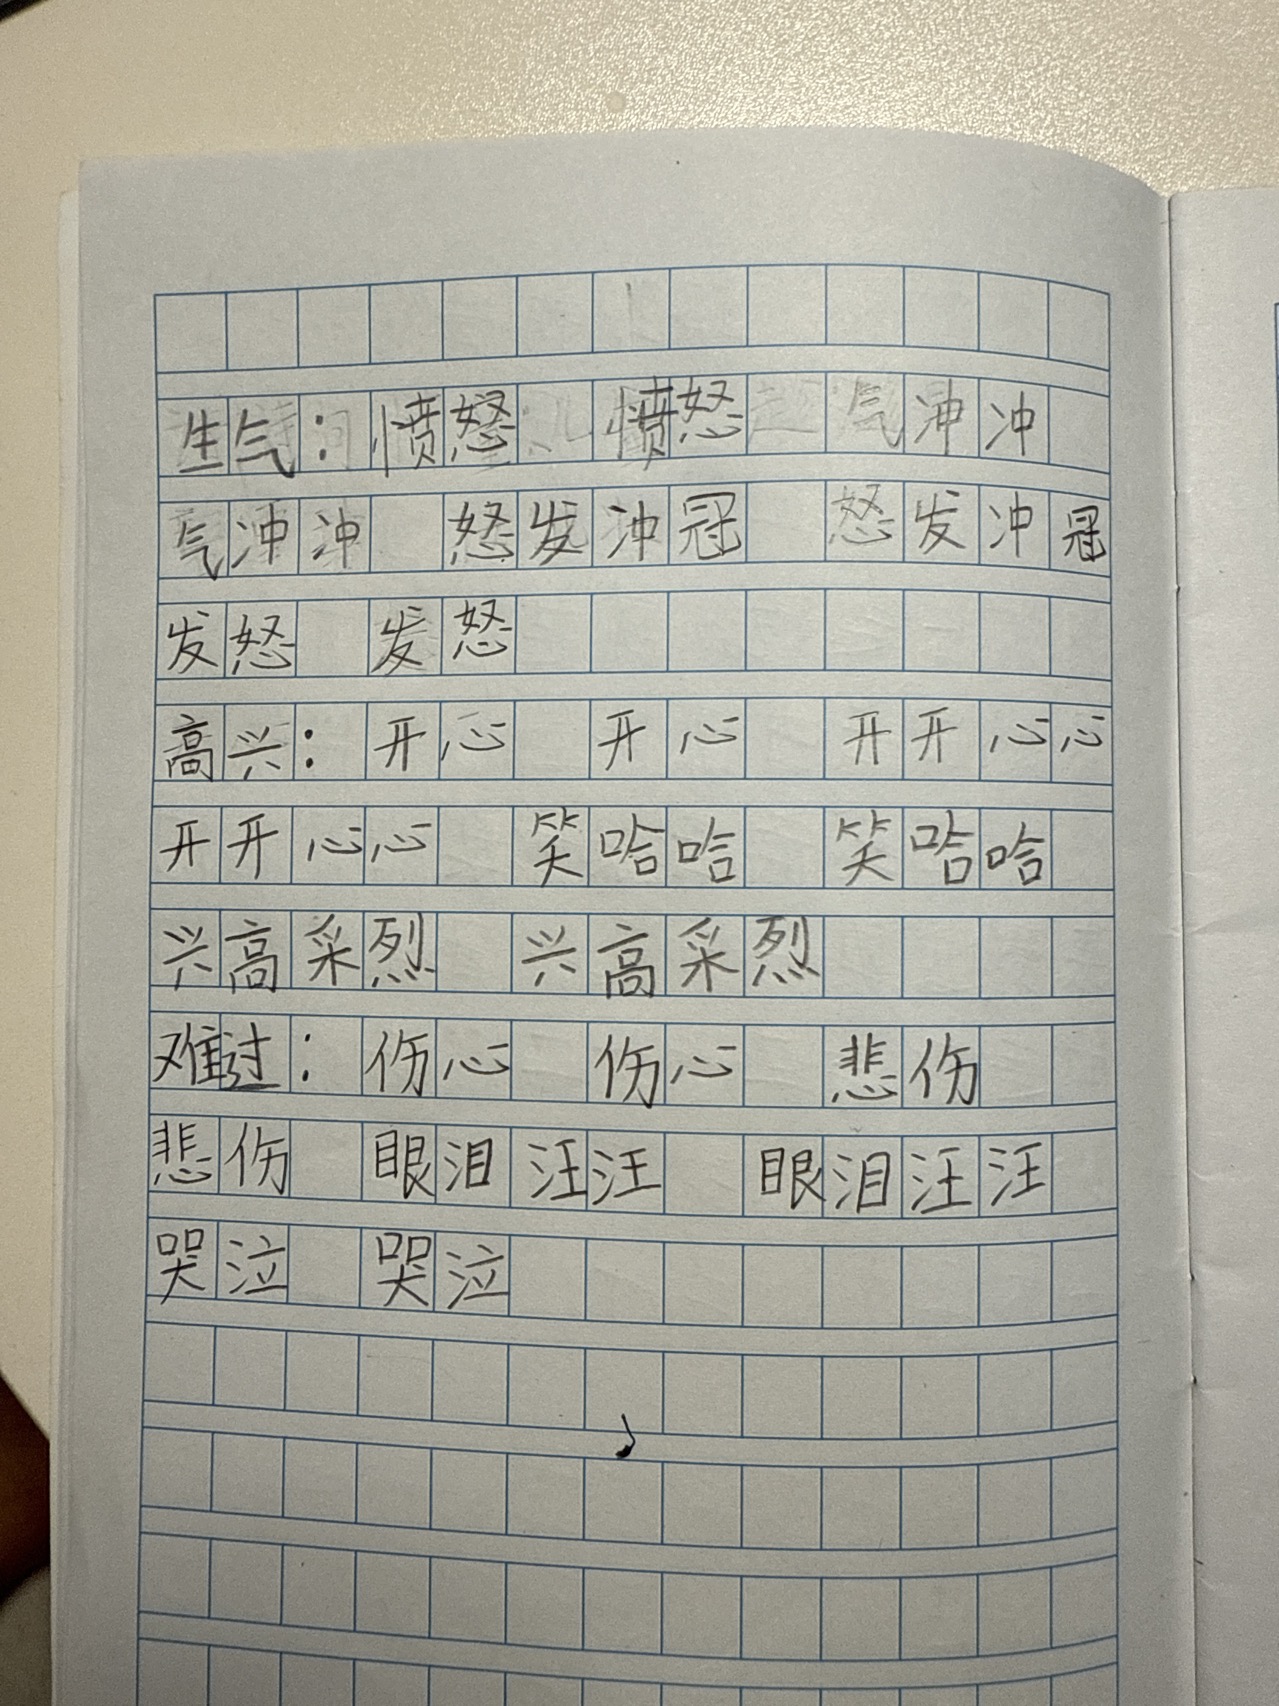 生气：愤怒 愤怒 气冲冲
气冲冲 怒发冲冠 怒发冲冠
发怒 发怒
高兴：开心 开心 开开心心
开开心心 笑哈哈 笑哈哈
兴高采烈 兴高采烈
难过：伤心 伤心 悲伤
悲伤 眼泪汪汪 眼泪汪汪
哭泣 哭泣